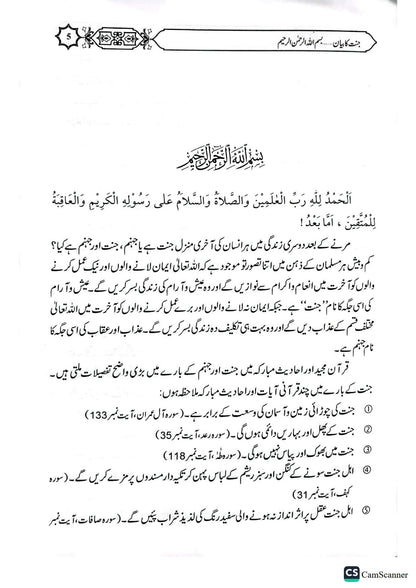 جنت کا بیان..... بسم اللہ الرحمٰن الرحیم
5
بِسْمِ اللّٰهِ الرَّحْمٰنِ الرَّحِيْمِ
اَلْحَمْدُ لِلّٰهِ رَبِّ الْعٰلَمِيْنَ وَالصَّلَاةُ وَالسَّلَامُ عَلٰى رَسُوْلِهِ الْكَرِيْمِ وَالْعَاقِبَةُ
لِلْمُتَّقِيْنَ ، اَمَّا بَعْدُ !
مرنے کے بعد دوسری زندگی میں ہر انسان کی آخری منزل جنت ہے یا جہنم، جنت اور جہنم ہے کیا؟
کم و بیش ہر مسلمان کے ذہن میں اتنا تصور تو موجود ہے کہ اللہ تعالیٰ ایمان لانے والوں اور نیک عمل کرنے
والوں کو آخرت میں انعام و اکرام سے نوازیں گے اور وہ عیش و آرام کی زندگی بسر کریں گے۔ عیش و آرام
کی اسی جگہ کا نام "جنت" ہے۔ جبکہ ایمان نہ لانے والوں اور برے عمل کرنے والوں کو آخرت میں اللہ تعالیٰ
مختلف قسم کے عذاب دیں گے اور وہ بہت ہی تکلیف دہ زندگی بسر کریں گے۔ عذاب اور عقاب کی اسی جگہ کا
نام جہنم ہے۔
قرآن مجید اور احادیث مبارکہ میں جنت اور جہنم کے بارے میں بڑی واضح تفصیلات ملتی ہیں۔
جنت کے بارے میں چند قرآنی آیات اور احادیث مبارکہ ملاحظہ ہوں:
① جنت کی چوڑائی زمین و آسمان کی وسعت کے برابر ہے۔ (سورہ آل عمران، آیت نمبر 133)
② جنت کے پھل اور بہاریں دائمی ہوں گی۔ (سورہ رعد، آیت نمبر 35)
③ جنت میں بھوک اور پیاس نہیں ہوگی۔ (سورہ طٰہٰ، آیت نمبر 118)
④ اہل جنت سونے کے کنگن اور سبز ریشم کے لباس پہن کر تکیہ دار مسندوں پر مزے کریں گے۔ (سورہ
کہف، آیت نمبر 31)
⑤ اہل جنت عقل پر اثر انداز نہ ہونے والی سفید رنگ کی لذیذ شراب پئیں گے۔ (سورہ صافات، آیت نمبر
CS CamScanner